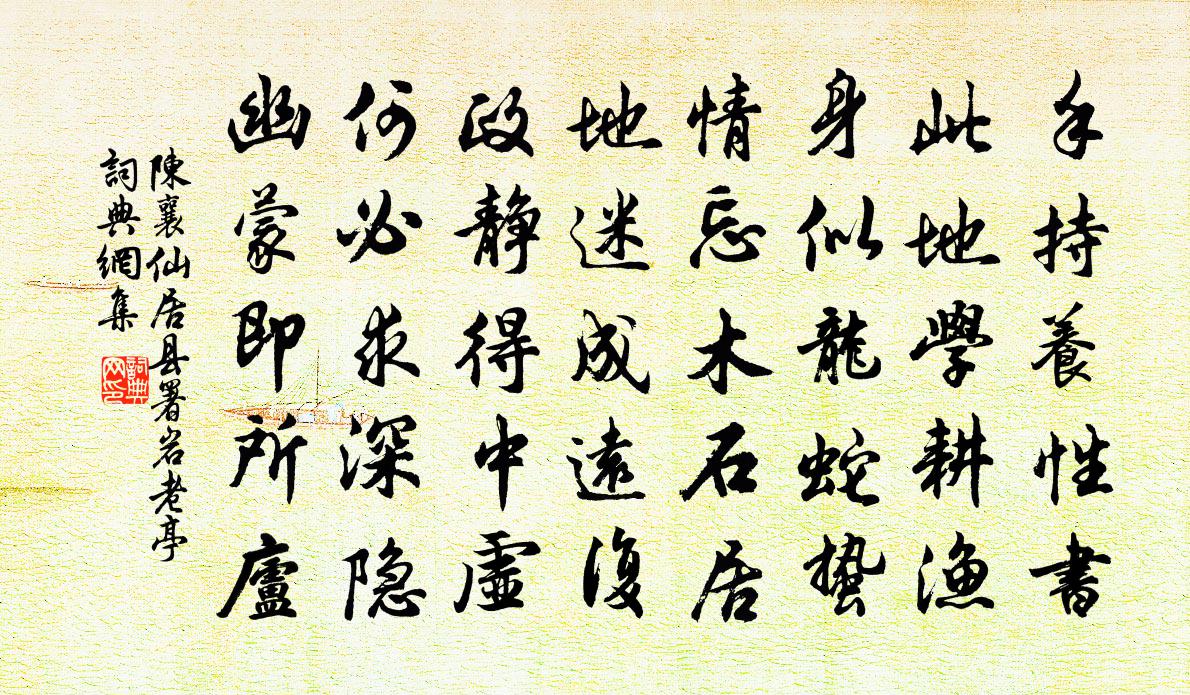 手持養性書
此地學耕漁
身似龍蛇蟄
情忘木石居
地迷成遠復
政静得中虛
何必求深隐
幽蒙即所廬
陳襄仙居县署岩老亭
詞典網集